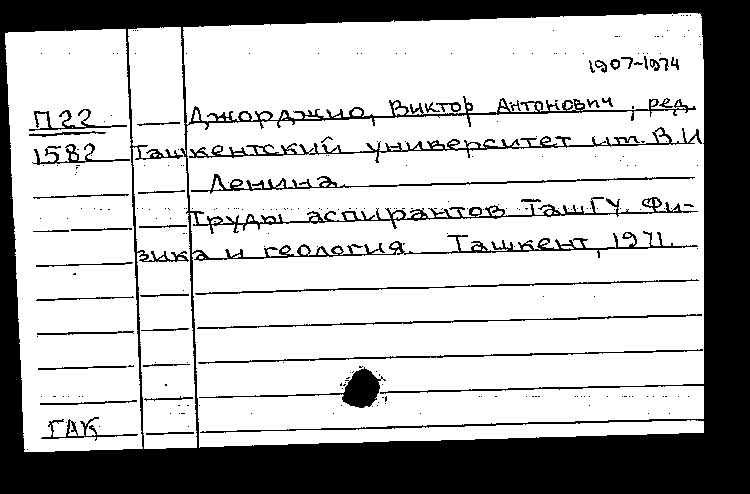 1907-1974
П22 Джорджио, Виктор Антонович, ред.
1582 Ташкентский университет им. В.И
Ленина.
Труды аспирантов ТашГУ. Фи-
зика и геология. Ташкент, 1971.
ГАК